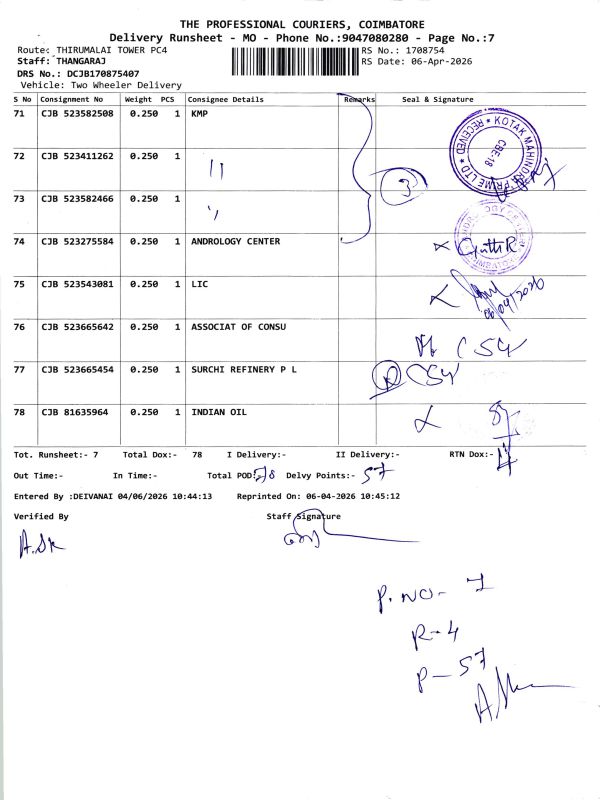 THE PROFESSIONAL COURIERS, COIMBATORE
Delivery Runsheet - MO - Phone No.:9047080280 - Page No.:7
Route: THIRUMALAI TOWER PC4
RS No.: 1708754
Staff: THANGARAJ
RS Date: 06-Apr-2026
DRS No.: DCJB170875407
Vehicle: Two Wheeler Delivery
S No Consignment No Weight PCS Consignee Details Remarks Seal & Signature
71 CJB 523582508 0.250 1 KMP
KOTAK MAHINDRA PRIME LTD * RECEIVED *
CBE-18
72 CJB 523411262 0.250 1 ''
3
73 CJB 523582466 0.250 1 ''
74 CJB 523275584 0.250 1 ANDROLOGY CENTER
75 CJB 523543081 0.250 1 LIC
06/04/2026
76 CJB 523665642 0.250 1 ASSOCIAT OF CONSU
77 CJB 523665454 0.250 1 SURCHI REFINERY P L
R
78 CJB 81635964 0.250 1 INDIAN OIL
57
4
Tot. Runsheet:- 7 Total Dox:- 78 I Delivery:- II Delivery:- RTN Dox:-
Out Time:- In Time:- Total POD:- 78 Delvy Points:- 57
Entered By :DEIVANAI 04/06/2026 10:44:13 Reprinted On: 06-04-2026 10:45:12
Verified By Staff Signature
P. NO - 7
R - 4
P - 57